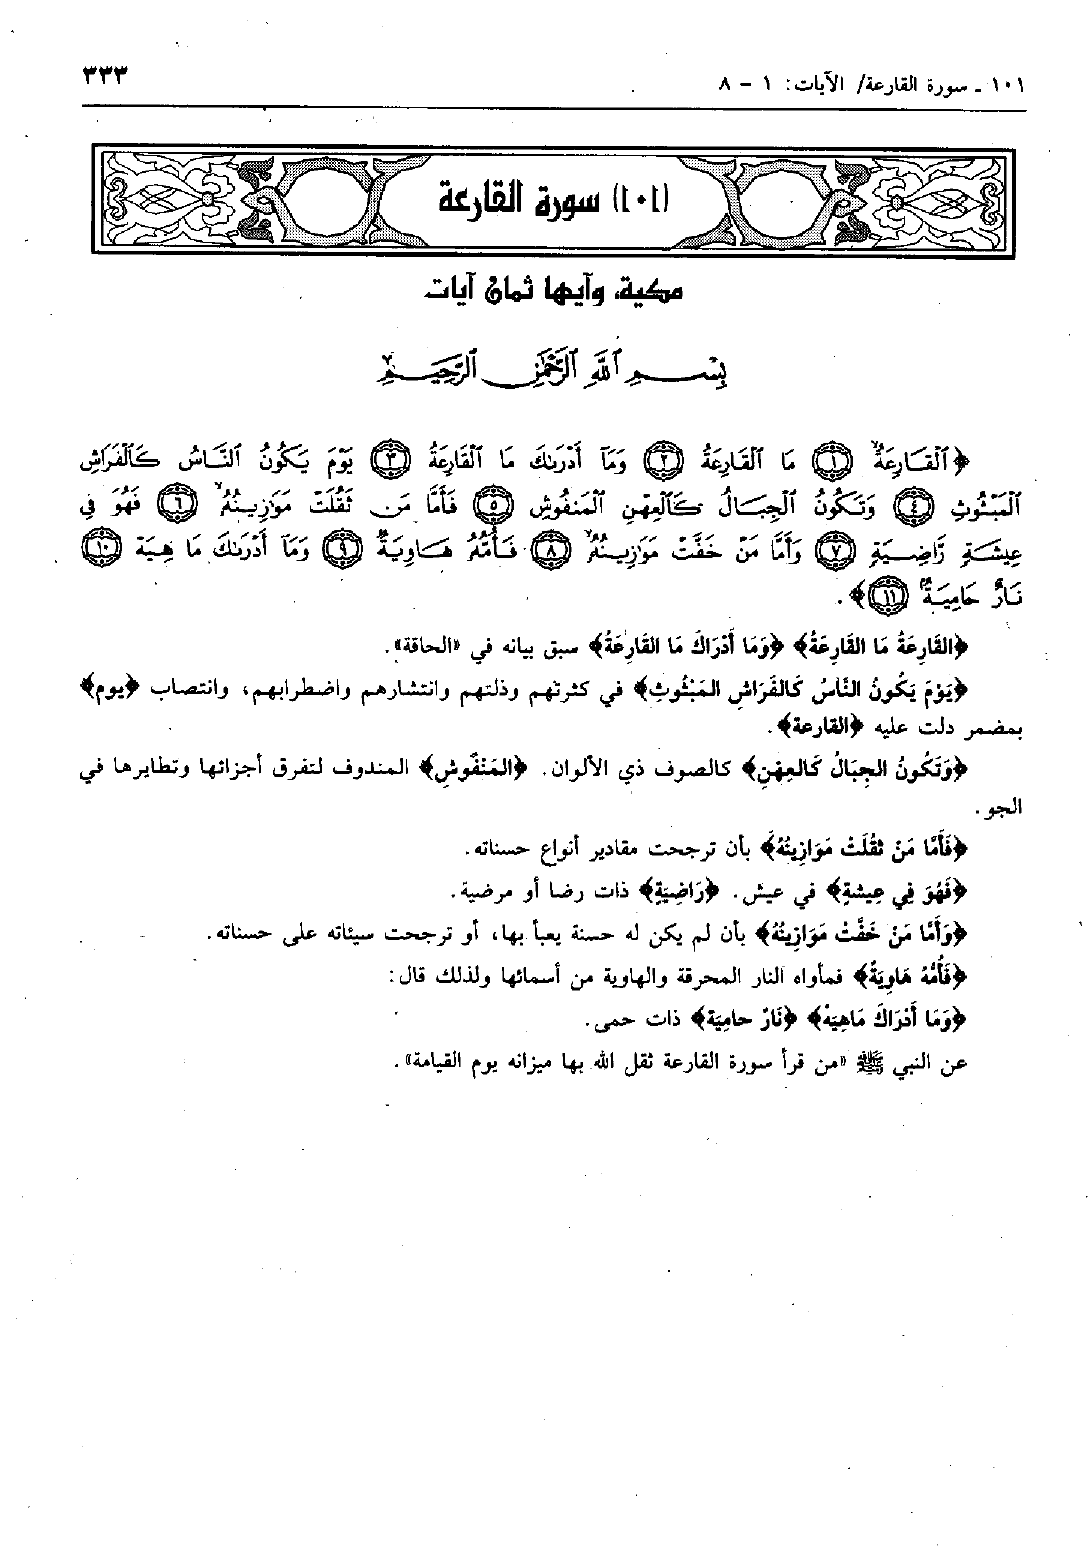 ١٠١ ـ سورة القارعة/ الآيات: ١ - ٨
٣٣٣
(١٠١) سورة القارعة
مكية، وآيها ثمان آيات
بِسْمِ اللَّهِ الرَّحْمَٰنِ الرَّحِيمِ
﴿ٱلْقَارِعَةُ ۝١ مَا ٱلْقَارِعَةُ ۝٢ وَمَآ أَدْرَىٰكَ مَا ٱلْقَارِعَةُ ۝٣ يَوْمَ يَكُونُ ٱلنَّاسُ كَٱلْفَرَاشِ
ٱلْمَبْثُوثِ ۝٤ وَتَكُونُ ٱلْجِبَالُ كَٱلْعِهْنِ ٱلْمَنفُوشِ ۝٥ فَأَمَّا مَن ثَقُلَتْ مَوَٰزِينُهُۥ ۝٦ فَهُوَ فِي
عِيشَةٍ رَّاضِيَةٍ ۝٧ وَأَمَّا مَنْ خَفَّتْ مَوَٰزِينُهُۥ ۝٨ فَأُمُّهُۥ هَاوِيَةٌ ۝٩ وَمَآ أَدْرَىٰكَ مَا هِيَهْ ۝١٠
نَارٌ حَامِيَةٌۢ ۝١١﴾.
﴿القَارِعَةُ مَا القَارِعَةُ﴾ ﴿وَمَا أَدْرَاكَ مَا القَارِعَةُ﴾ سبق بيانه في «الحاقة».
﴿يَوْمَ يَكُونُ النَّاسُ كَالفَرَاشِ المَبْثُوثِ﴾ في كثرتهم وذلتهم وانتشارهم واضطرابهم، وانتصاب ﴿يوم﴾
بمضمر دلت عليه ﴿القارعة﴾.
﴿وَتَكُونُ الجِبَالُ كَالعِهْنِ﴾ كالصوف ذي الألوان. ﴿المَنْفُوشِ﴾ المندوف لتفرق أجزائها وتطايرها في
الجو.
﴿فَأَمَّا مَنْ ثَقُلَتْ مَوَازِينُهُ﴾ بأن ترجحت مقادير أنواع حسناته.
﴿فَهُوَ فِي عِيشةٍ﴾ في عيش. ﴿رَاضِيَةٍ﴾ ذات رضا أو مرضية.
﴿وَأَمَّا مَنْ خَفَّتْ مَوَازِينُهُ﴾ بأن لم يكن له حسنة يعبأ بها، أو ترجحت سيئاته على حسناته.
﴿فَأُمُّهُ هَاوِيَةٌ﴾ فمأواه النار المحرقة والهاوية من أسمائها ولذلك قال:
﴿وَمَا أَدْرَاكَ مَاهِيَهْ﴾ ﴿نَارٌ حامِيَة﴾ ذات حمى.
عن النبي ﷺ «من قرأ سورة القارعة ثقل الله بها ميزانه يوم القيامة».